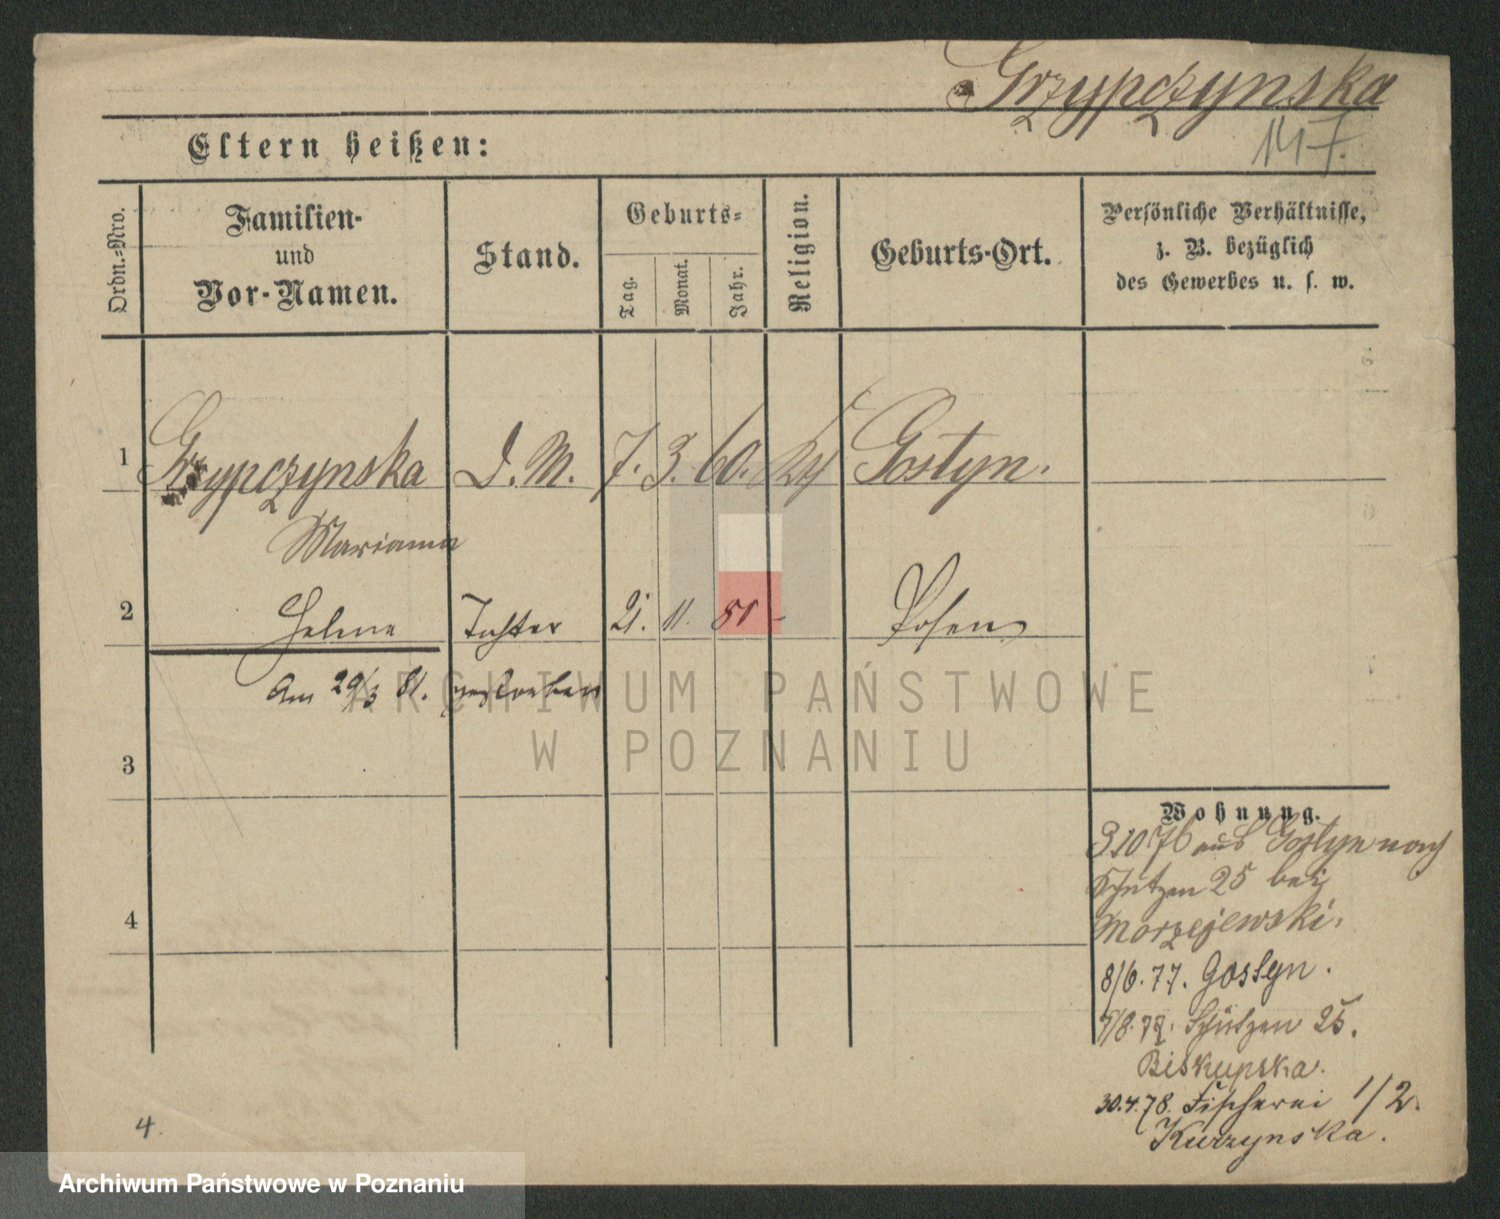 Grzypczynska
147.
Eltern heißen:
Ordn.-Nro.
Familien-
und
Vor-Namen.
Stand.
Geburts-
Tag.
Monat.
Jahr.
Religion.
Geburts-Ort.
Persönliche Verhältnisse,
z. B. bezüglich
des Gewerbes u. s. w.
1 Grzypczynska D. M. 7. 3. 60. Gostyn.
Marianna
2 Helene Tochter 21. 11. Posen
Am 29/3 81. gestorben
ARCHIWUM PAŃSTWOWE
W POZNANIU
3
Wohnung.
3 10 76 aus Gostyn nach
Schützen 25 bei
Morzejewski.
4
8/6. 77. Gostyn.
7/8. Schützen 25.
Biskupska.
30.4.78. Fischerei 1/2.
Kurzynska.
4.
Archiwum Państwowe w Poznaniu